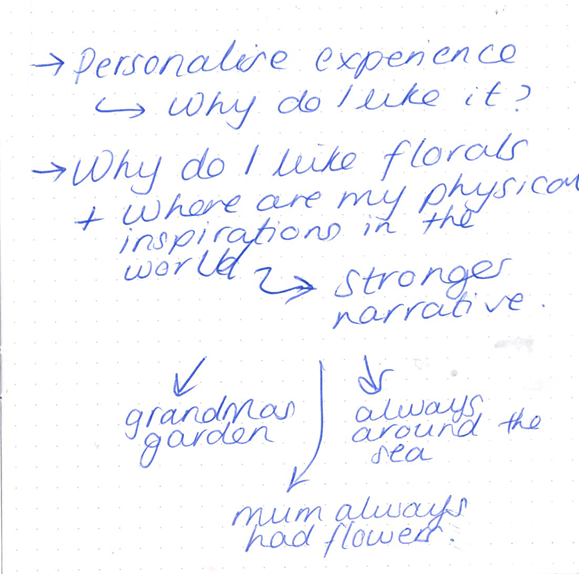 → Personalise experience
↳ Why do I like it?
→ Why do I like florals
+ where are my physical
inspirations in the
world
→ stronger
narrative.
grandmas
garden
always
around the
sea
mum always
had flowers.